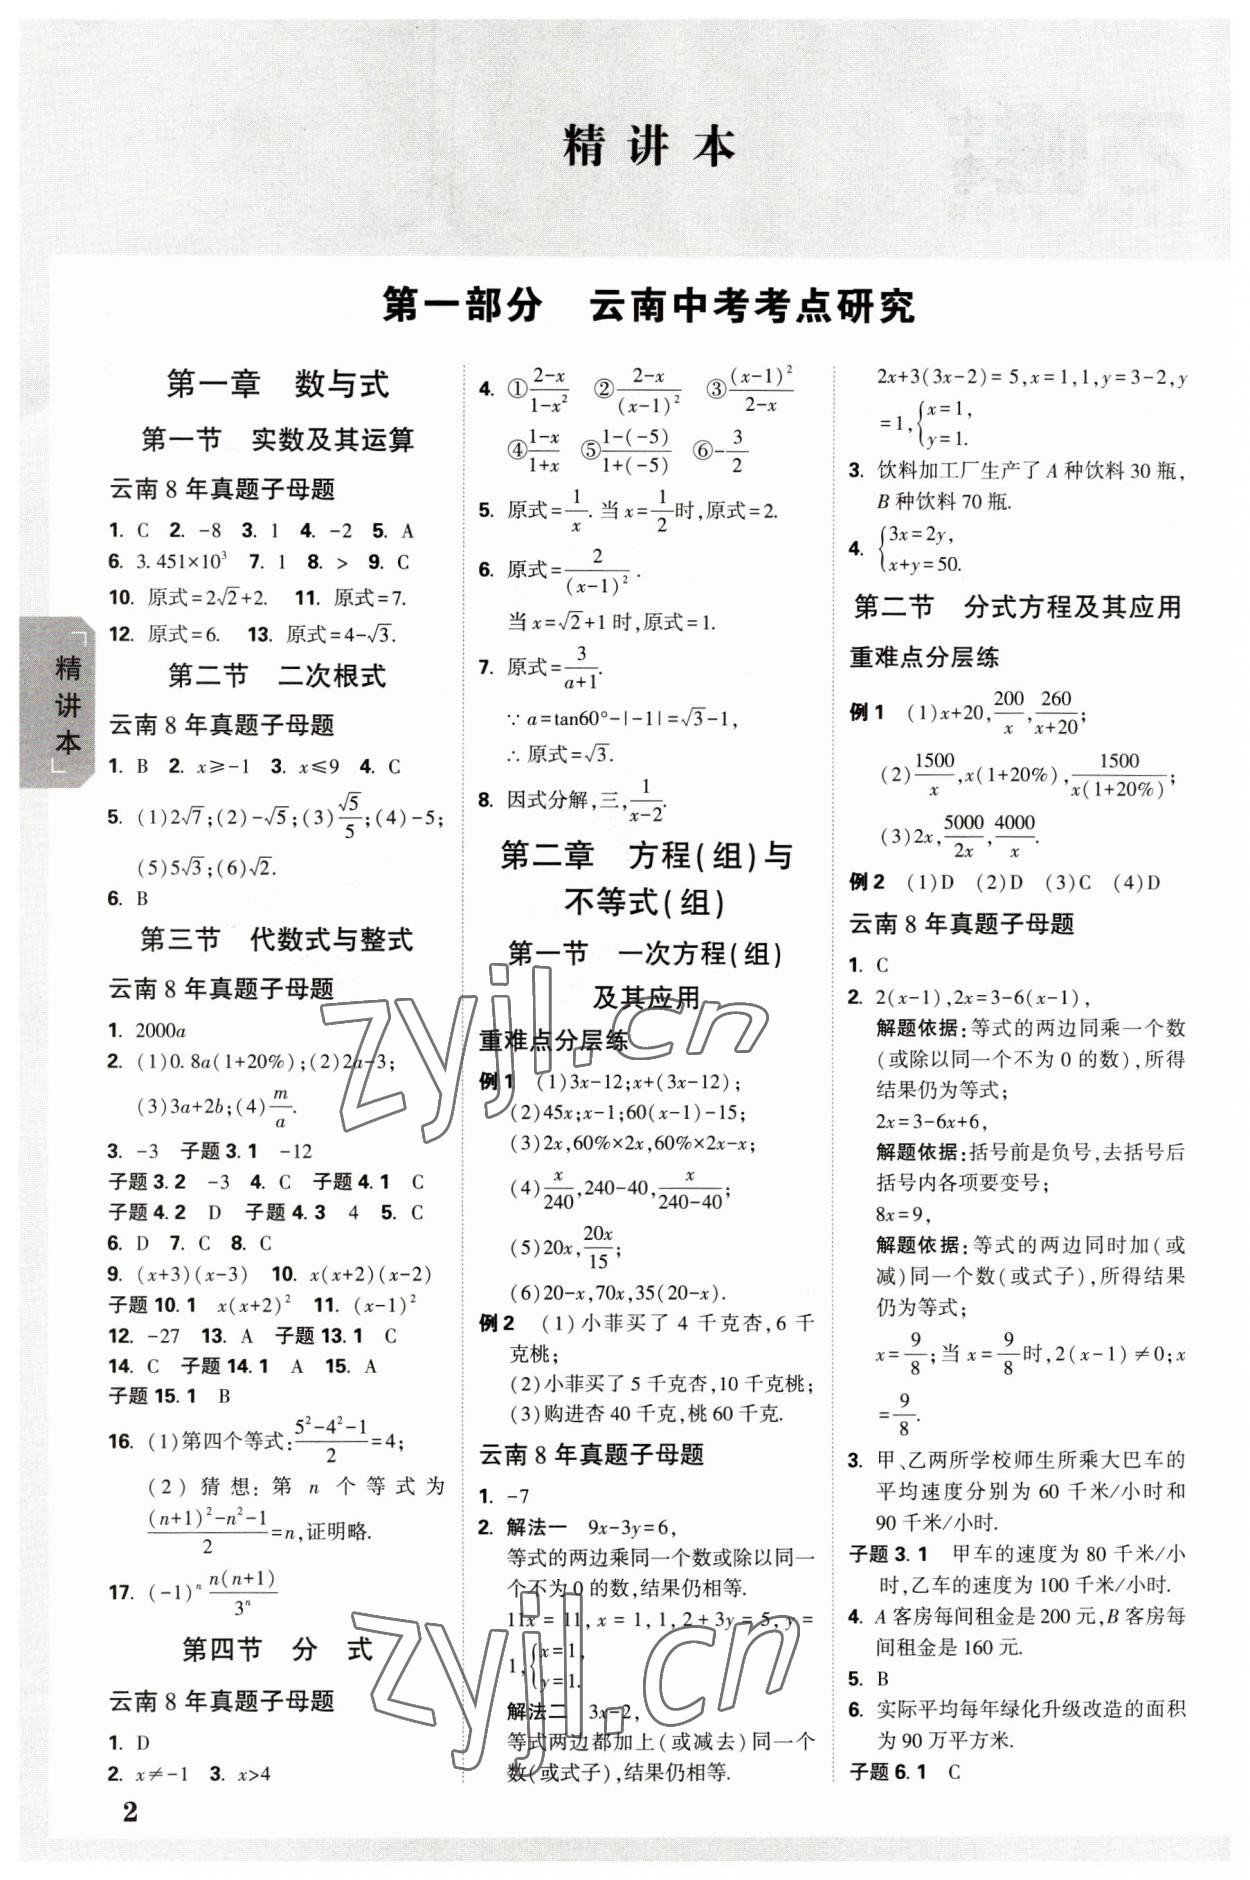 精讲本
第一部分 云南中考考点研究
第一章 数与式
第一节 实数及其运算
云南8年真题子母题
1. C 2. -8 3. 1 4. -2 5. A
6. 3.451×10³ 7. 1 8. > 9. C
10. 原式=2√2+2. 11. 原式=7.
12. 原式=6. 13. 原式=4-√3.
第二节 二次根式
云南8年真题子母题
1. B 2. x≥-1 3. x≤9 4. C
5. (1)2√7;(2)-√5;(3)√5/5;(4)-5;
(5)5√3;(6)√2.
6. B
第三节 代数式与整式
云南8年真题子母题
1. 2000a
2. (1)0.8a(1+20%);(2)2a-3;
(3)3a+2b;(4)m/a.
3. -3 子题3.1 -12
子题3.2 -3 4. C 子题4.1 C
子题4.2 D 子题4.3 4 5. C
6. D 7. C 8. C
9. (x+3)(x-3) 10. x(x+2)(x-2)
子题10.1 x(x+2)² 11. (x-1)²
12. -27 13. A 子题13.1 C
14. C 子题14.1 A 15. A
子题15.1 B
16. (1)第四个等式:(5²-4²-1)/2=4;
(2)猜想:第n个等式为
((n+1)²-n²-1)/2=n,证明略.
17. (-1)ⁿ n(n+1)/3ⁿ
第四节 分 式
云南8年真题子母题
1. D
2. x≠-1 3. x>4
4. ①(2-x)/(1-x²) ②(2-x)/(x-1)² ③(x-1)²/(2-x)
④(1-x)/(1+x) ⑤(1-(-5))/(1+(-5)) ⑥-3/2
5. 原式=1/x.当x=1/2时,原式=2.
6. 原式=2/(x-1)².
当x=√2+1时,原式=1.
7. 原式=3/(a+1).
∵a=tan60°-|-1|=√3-1,
∴原式=√3.
8. 因式分解,三,1/(x-2).
第二章 方程(组)与
不等式(组)
第一节 一次方程(组)
及其应用
重难点分层练
例1 (1)3x-12;x+(3x-12);
(2)45x;x-1;60(x-1)-15;
(3)2x,60%×2x,60%×2x-x;
(4)x/240,240-40,x/(240-40);
(5)20x,20x/15;
(6)20-x,70x,35(20-x).
例2 (1)小菲买了4千克杏,6千
克桃;
(2)小菲买了5千克杏,10千克桃;
(3)购进杏40千克,桃60千克.
云南8年真题子母题
1. -7
2. 解法一 9x-3y=6,
等式的两边乘同一个数或除以同一
个不为0的数,结果仍相等.
11x=11,x=1,1,2+3y=5,y=
1,{x=1,
y=1.
解法二 3x-2,
等式两边都加上(或减去)同一个
数(或式子),结果仍相等.
2x+3(3x-2)=5,x=1,1,y=3-2,y
=1,{x=1,
y=1.
3. 饮料加工厂生产了A种饮料30瓶,
B种饮料70瓶.
4. {3x=2y,
x+y=50.
第二节 分式方程及其应用
重难点分层练
例1 (1)x+20,200/x,260/(x+20);
(2)1500/x,x(1+20%),1500/(x(1+20%));
(3)2x,5000/2x,4000/x.
例2 (1)D (2)D (3)C (4)D
云南8年真题子母题
1. C
2. 2(x-1),2x=3-6(x-1),
解题依据:等式的两边同乘一个数
(或除以同一个不为0的数),所得
结果仍为等式;
2x=3-6x+6,
解题依据:括号前是负号,去括号后
括号内各项要变号;
8x=9,
解题依据:等式的两边同时加(或
减)同一个数(或式子),所得结果
仍为等式;
x=9/8;当x=9/8时,2(x-1)≠0;x
=9/8.
3. 甲、乙两所学校师生所乘大巴车的
平均速度分别为60千米/小时和
90千米/小时.
子题3.1 甲车的速度为80千米/小
时,乙车的速度为100千米/小时.
4. A客房每间租金是200元,B客房每
间租金是160元.
5. B
6. 实际平均每年绿化升级改造的面积
为90万平方米.
子题6.1 C
精讲本
2
zyjl.cn
zyjl.cn